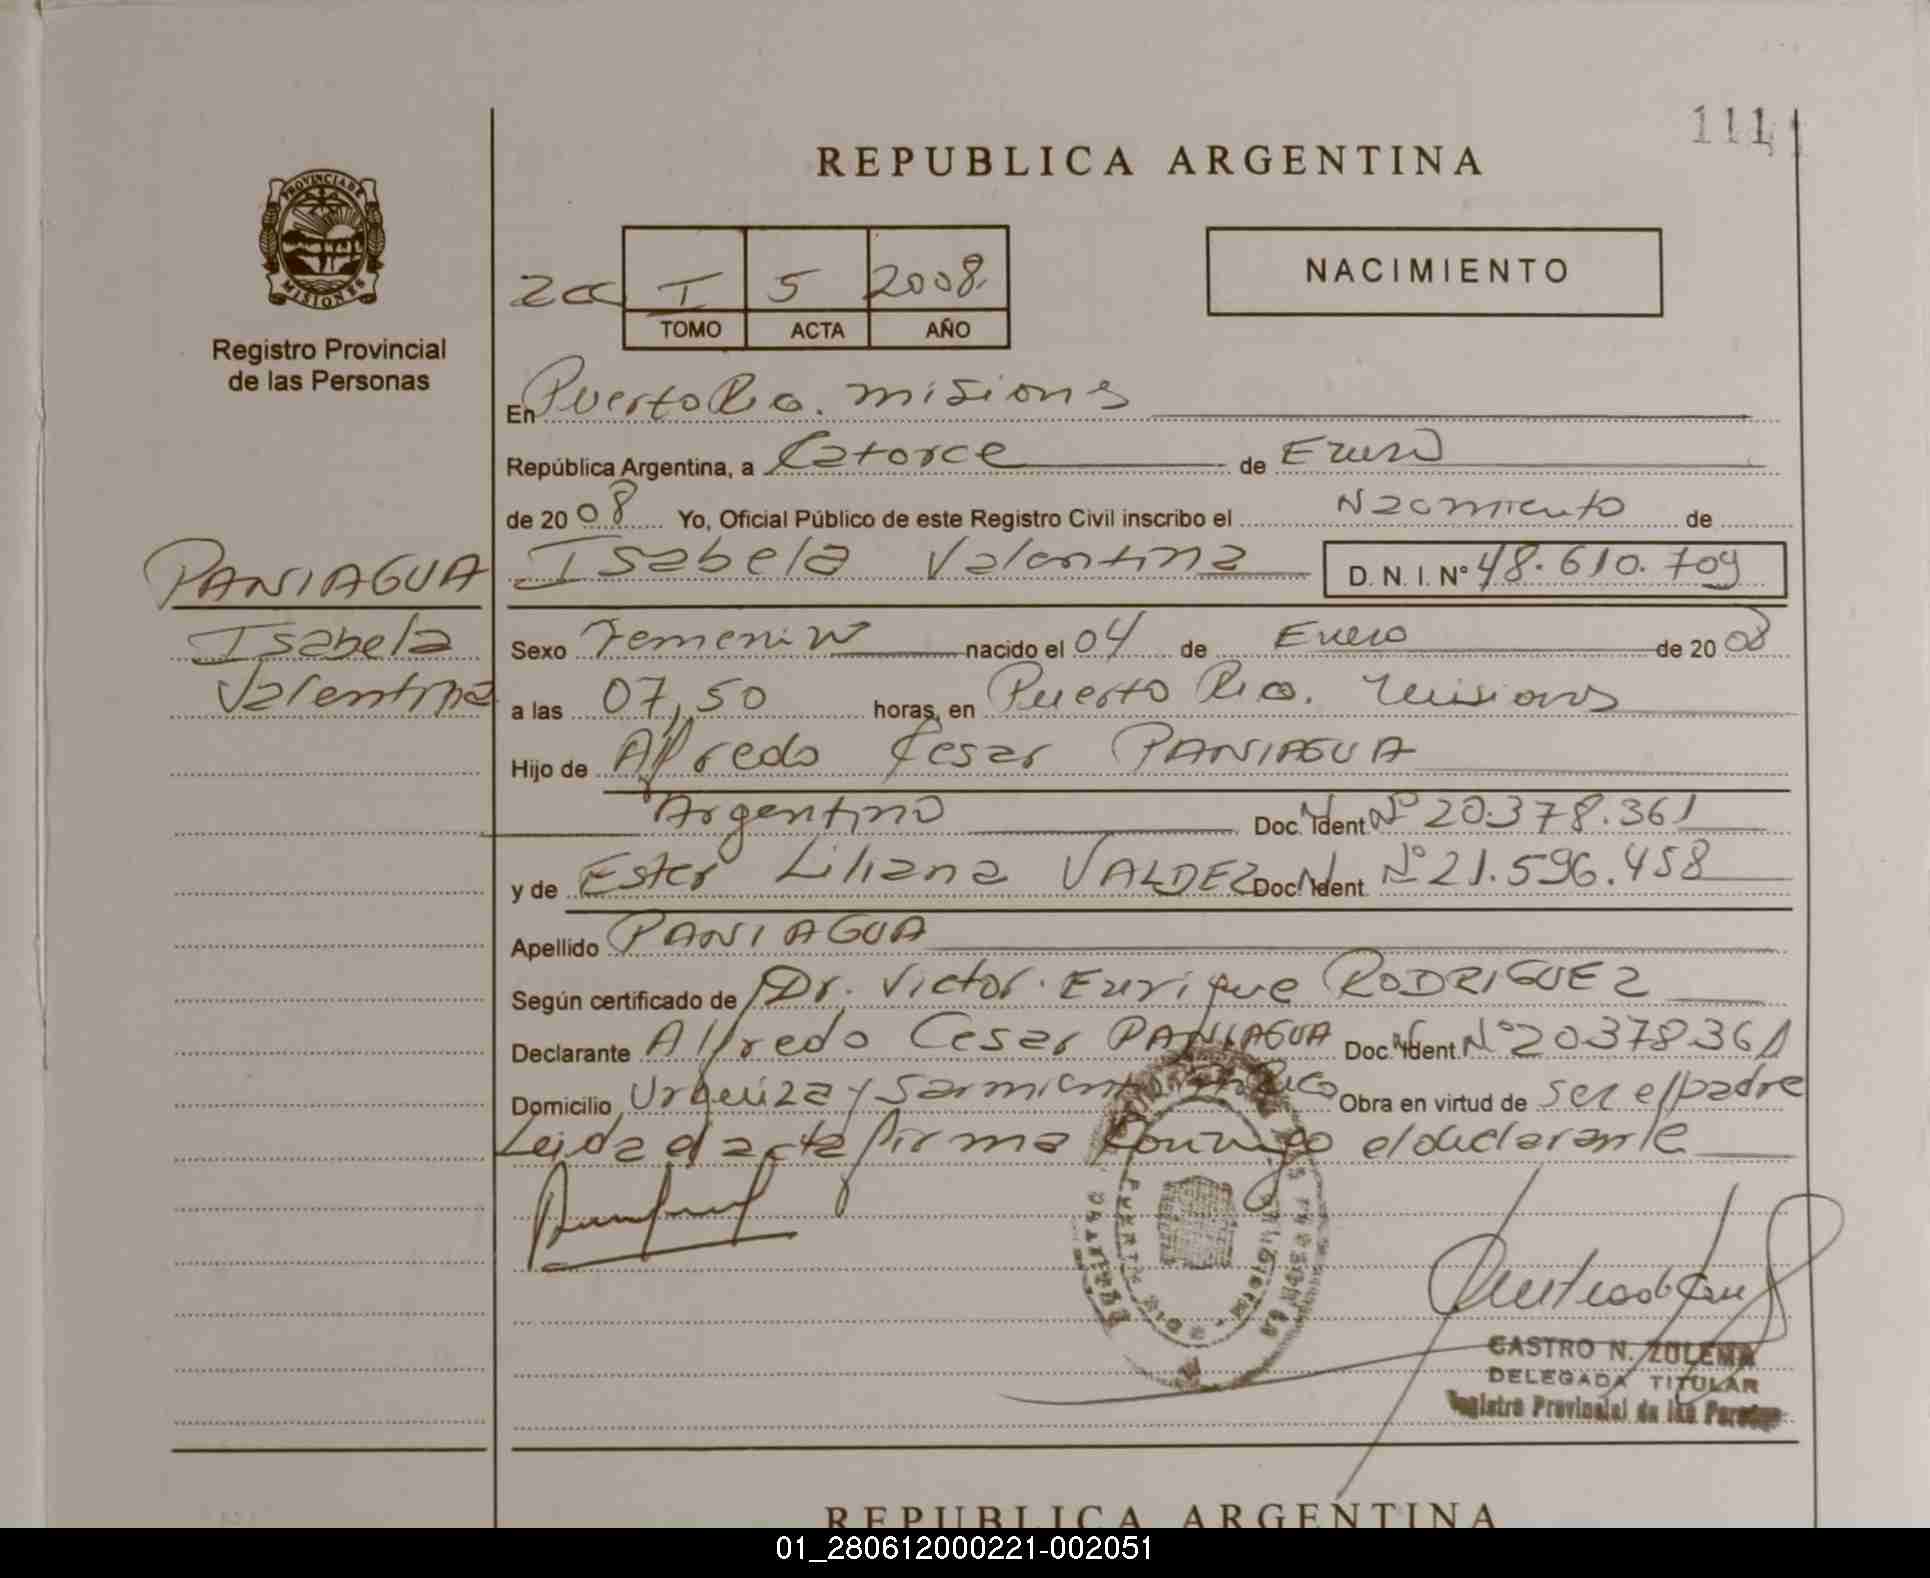 1111
REPUBLICA ARGENTINA
PROVINCIA DE
MISIONES
Registro Provincial
de las Personas
I 5 2008
TOMO ACTA AÑO
NACIMIENTO
En Puerto Rico. misiones
República Argentina, a Catorce de Enero
de 2008 Yo, Oficial Público de este Registro Civil inscribo el Nacimiento de
PANIAGUA
Isabela
Valentina
Isabela Valentina D.N.I. Nº 48.610.709
Sexo Femenino nacido el 04 de Enero de 2008
a las 07,50 horas, en Puerto Rico. Misiones
Hijo de Alfredo Cesar PANIAGUA
Argentino Doc. Ident. Nº 20.378.361
y de Ester Liliana VALDEZ Doc. Ident. Nº 21.596.458
Apellido PANIAGUA
Según certificado de Dr. Victor Enrique RODRIGUEZ
Declarante Alfredo Cesar PANIAGUA Doc. Ident. Nº 20378361
Domicilio Urquiza y Sarmiento Obra en virtud de ser el padre
Leida el acta firma conmigo el declarante
CASTRO N. ZULEMA
DELEGADA TITULAR
Registro Provincial de las Personas
REPUBLICA ARGENTINA
01_280612000221-002051